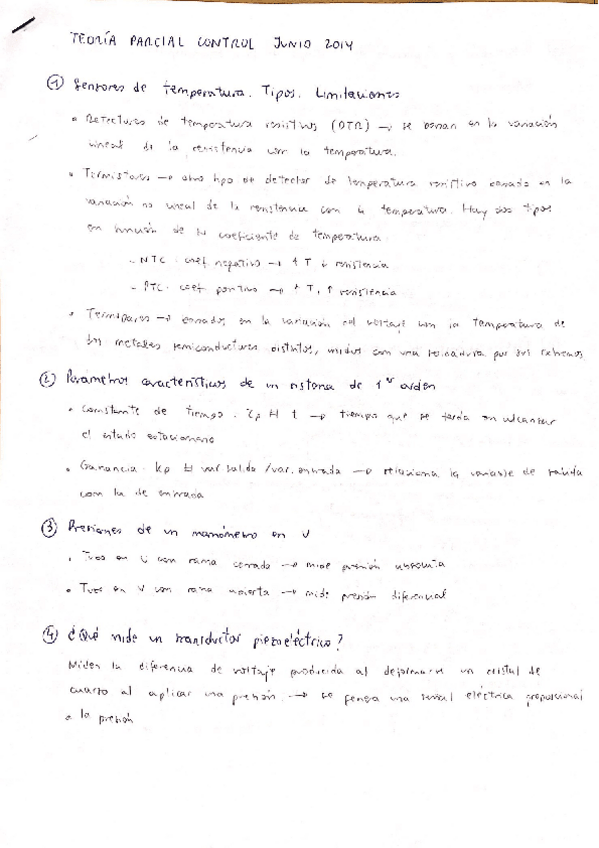 TEORÍA PARCIAL CONTROL JUNIO 2014
① Sensores de temperatura. Tipos. Limitaciones
• Detectores de temperatura resistivos (DTR) → se basan en la variación
lineal de la resistencia con la temperatura.
• Termistores → otro tipo de detector de temperatura resistivo basado en la
variación no lineal de la resistencia con la temperatura. Hay dos tipos
en función de su coeficiente de temperatura
- NTC: coef negativo → ↑ T ↓ resistencia
- PTC: coef positivo → ↑ T, ↑ resistencia
• Termopares → basados en la variación del voltaje con la temperatura de
dos metales semiconductores distintos, unidos con una soldadura por sus extremos
② Parámetros característicos de un sistema de 1er orden
• Constante de tiempo: t → tiempo que se tarda en alcanzar
el estado estacionario
• Ganancia: kp var salida / var. entrada → relaciona la variable de salida
con la de entrada
③ Presiones de un manómetro en U
• Tubo en U con rama cerrada → mide presión absoluta
• Tubo en U con rama abierta → mide presión diferencial
④ ¿Qué mide un transductor piezoeléctrico?
Miden la diferencia de voltaje producida al deformarse un cristal de
cuarzo al aplicar una presión. → se genera una señal eléctrica proporcional
a la presión